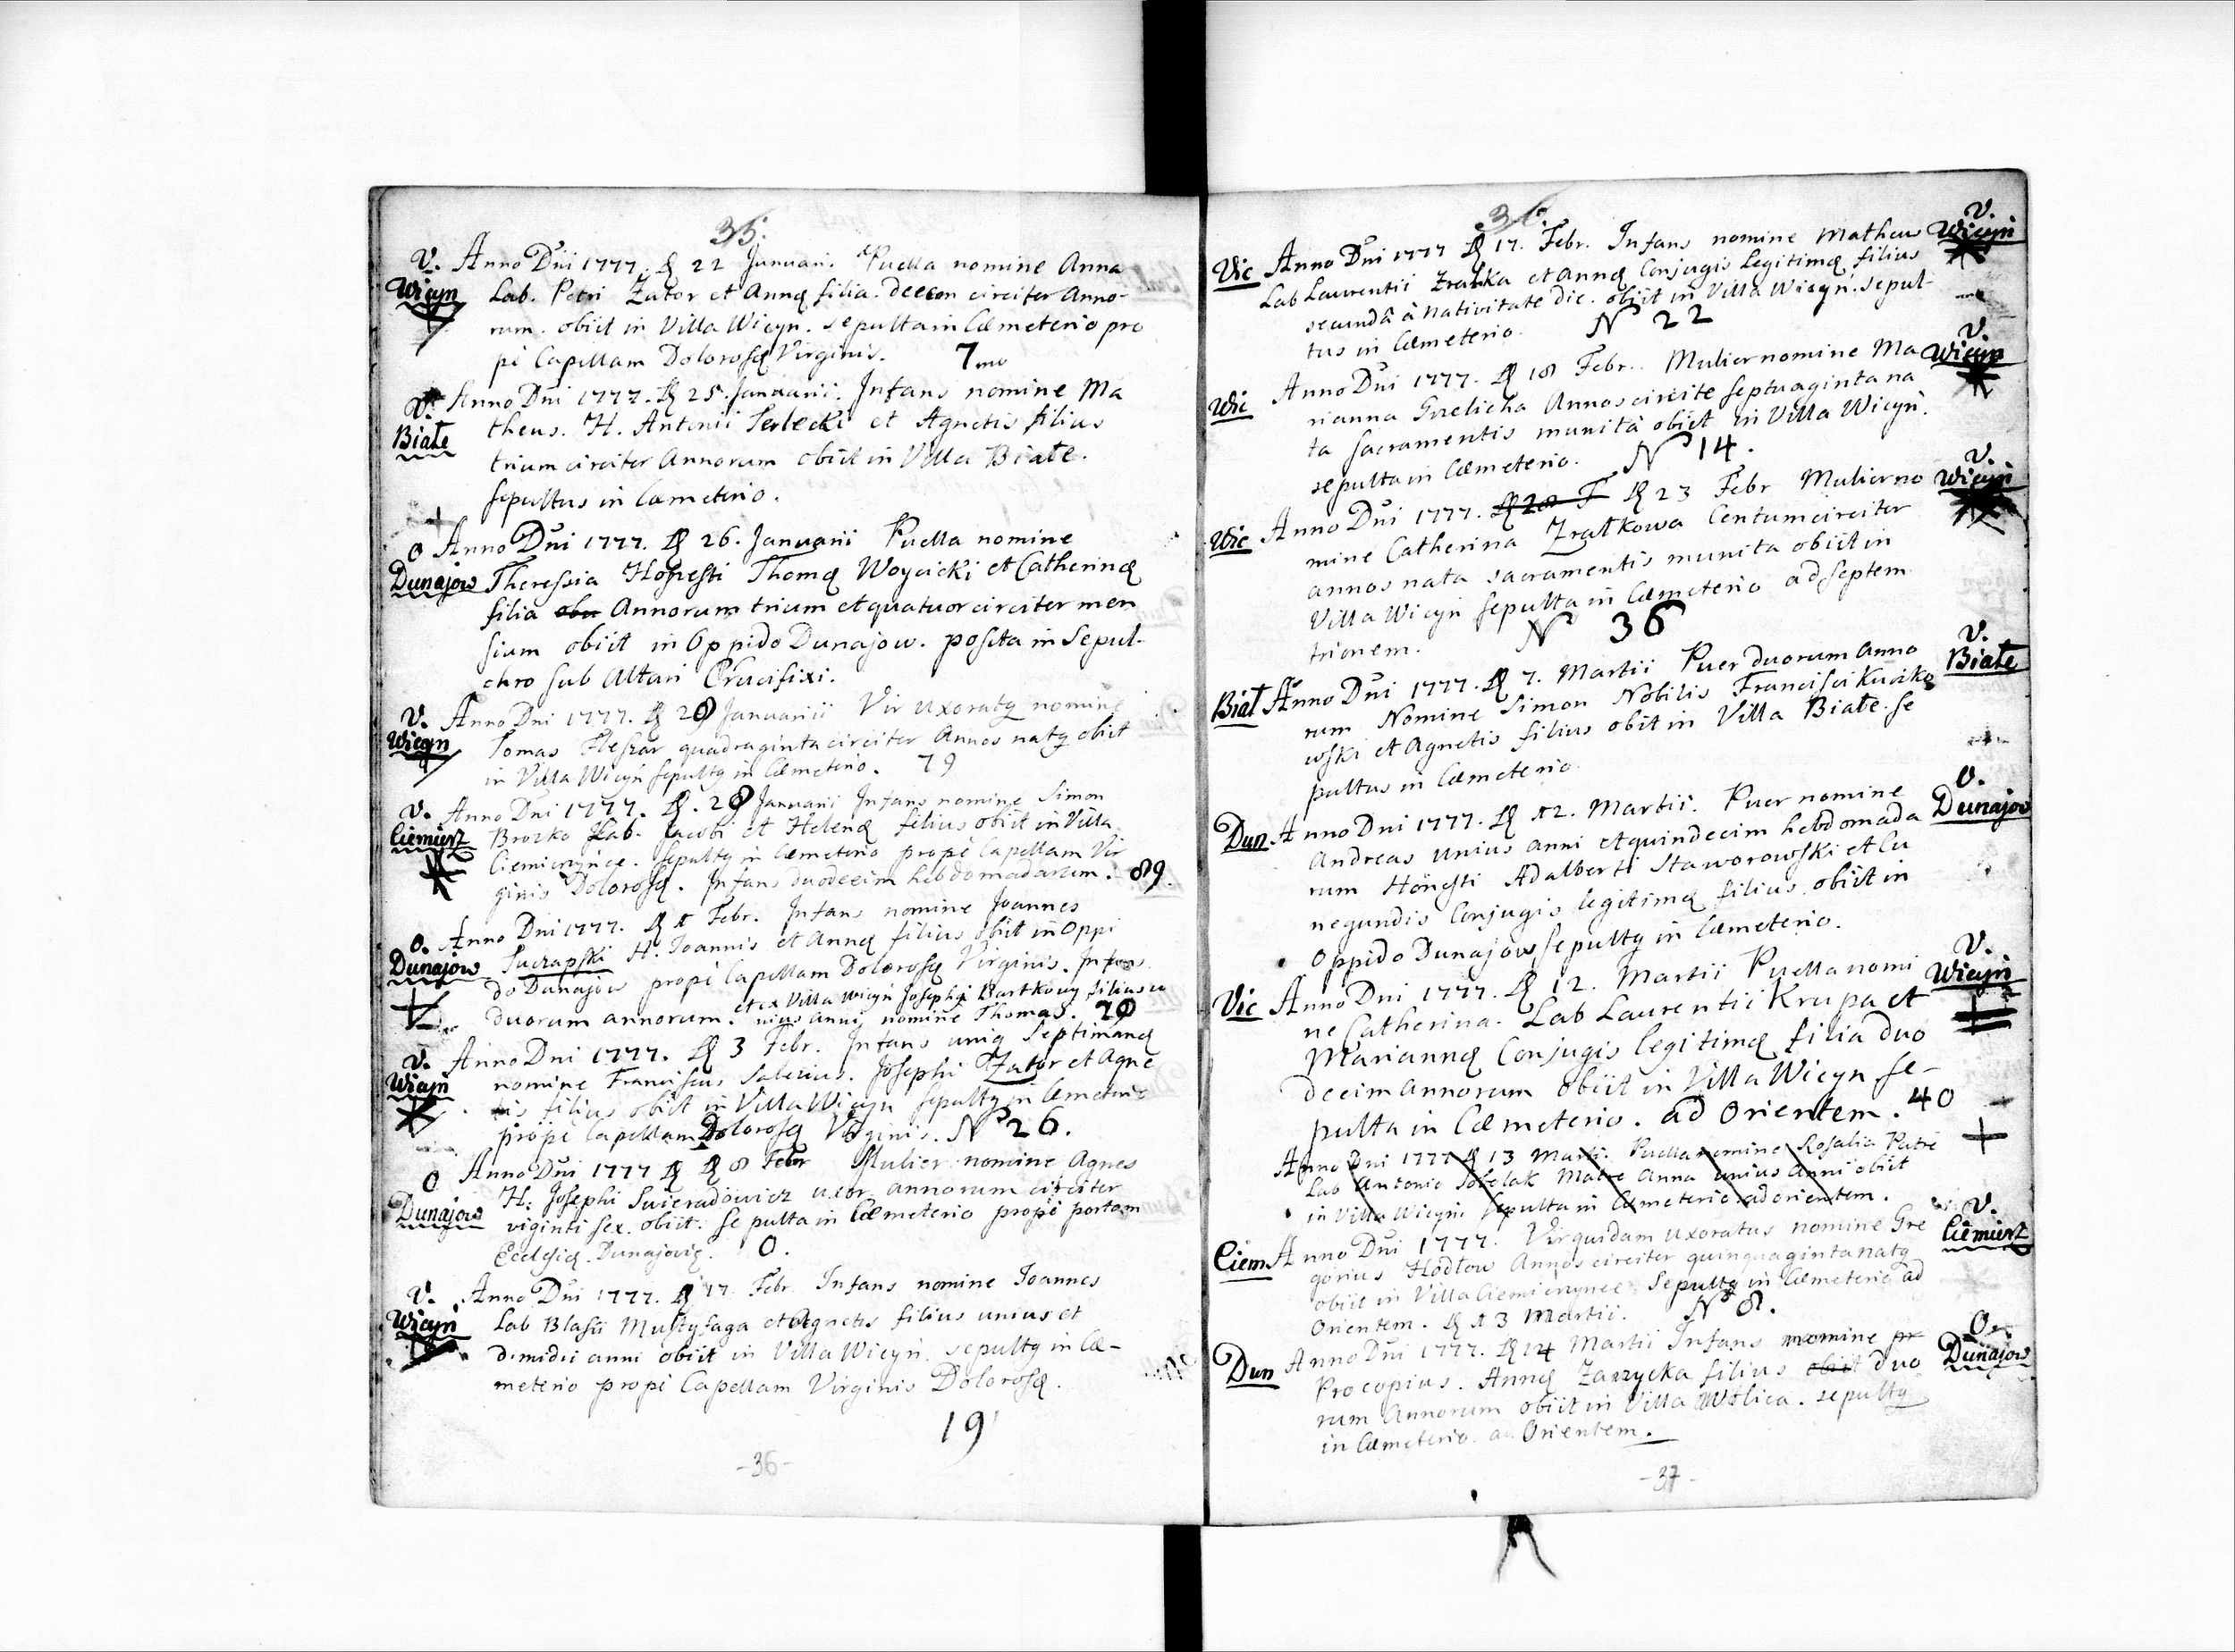 35.
V. Anno Dni 1777. D 22 Januari. Puella nomine Anna
Wicyn Lab. Petri Zator et Annæ filia. decem circiter Anno-
rum. obiit in Villa Wicyn. sepulta in Cæmeterio pro
pè Capellam Dolorosæ Virginis. 7mo
V. Anno Dni 1777. D 25. Januarii. Infans nomine Ma
Białe theus. H. Antonii Serlecki et Agnetis filius
trium circiter Annorum obiit in Villa Białe.
sepultus in Cæmeterio.
O Anno Dni 1777. D 26. Januarii Puella nomine
Dunajow Theressia Honesti Thomæ Woycicki et Catherinæ
filia Annorum trium et quatuor circiter men
sium obiit in Oppido Dunajow. posita in Sepul-
chro sub Altari Crucifixi.
V. Anno Dni 1777. D 28 Januarii Vir uxoratq nomine
Wicyn Tomas quadraginta circiter Annos natq obiit
in Villa Wicyn sepultq in Cæmeterio. 79
V. Anno Dni 1777. D. 28 Januarii Infans nomine Simon
Ciemierz Brozko Lab. Jacobi et Helenæ filius obiit in Villa
Ciemierzynce. sepultq in Cæmeterio propè Capellam Vir
ginis Dolorosæ. Infans duodecim hebdomadarum. 89.
O. Anno Dni 1777. D 1 Febr. Infans nomine Joannes
Dunajow H. Joannis et Annæ filius obiit in Oppi
do Dunajow propè Capellam Dolorosæ Virginis. Infans
et ex Villa Wicyn Josephi Bartkowy filius u
duorum annorum. nius anni nomine Thomas. 20
V. Anno Dni 1777. D 3 Febr. Infans uniq Septimanæ
Wicyn nomine Franciscus Salesius. Josephi Zator et Agne
tis filius obiit in Villa Wicyn sepultq in Cæmeterio
propè Capellam Dolorosæ Virginis. N 26.
O Anno Dni 1777 D D 8 Febr Mulier nomine Agnes
Dunajow H. Josephi Swieradowicz uxor annorum circiter
viginti sex. obiit. sepulta in Cæmeterio propè portam
Ecclesiæ Dunajoviæ. O.
V. Anno Dni 1777. D 17 Febr. Infans nomine Joannes
Wicyn Lab Blasii Mustyfaga et Agnetis filius unius et
dimidii anni obiit in Villa Wicyn. sepultq in Cæ-
meterio propè Capellam Virginis Dolorosæ.
19
-36-
36.
Vic Anno Dni 1777 D 17. Febr. Infans nomine Matheus V. Wicyn
Lab Laurentii Zralka et Annæ Conjugis Legitimæ filius
secundâ à Nativitate die. obiit in Villa Wicyn. sepul-
tus in Cæmeterio. N 22
Wic Anno Dni 1777. D 18 Febr. Mulier nomine Ma V. Wicyn
rianna Annos circite septuaginta na
ta sacramentis munita obiit in Villa Wicyn.
sepulta in Cæmeterio. N 14.
Wic Anno Dni 1777. D 28 F D 23 Febr Mulier no V. Wicyn
mine Catherina Zrałkowa Centum circiter
annos nata sacramentis munita obiit in
Villa Wicyn sepulta in Cæmeterio ad septem
trionem. N 36
Biał Anno Dni 1777. D 7. Martii Puer duorum Anno V. Białe
rum Nomine Simon Nobilis Francisci Kurzko
wski et Agnetis filius obiit in Villa Białe. se
pultus in Cæmeterio
Dun Anno Dni 1777. D 12. Martii. Puer nomine O. Dunajow
Andreas unius anni et quindecim hebdomada
rum Honesti Adalberti Staworowski et Cu
negundis Conjugis legitimæ filius obiit in
Oppido Dunajow sepultq in Cæmeterio.
Vic Anno Dni 1777. D 12. Martii Puella nomi V. Wicyn
ne Catherina. Lab Laurentii Krupa et
Mariannæ Conjugis legitimæ filia duo
decim annorum obiit in Villa Wicyn se-
pulta in Cæmeterio. ad Orientem. 40
Anno Dni 1777 D 13 Martii. Puella nomine Rosalia Patre
Lab Antonio Sobelak Matre Anna unius Anni obiit
in Villa Wicyn. sepulta in Cæmeterio ad orientem.
Ciem Anno Dni 1777. Vir quidam uxoratus nomine Gre V. Ciemierz
gorius Hodlow Annos circiter quinquaginta natq
obiit in Villa Ciemierzynce sepultq in Cæmeterio ad
Orientem. D 13 Martii. N 8.
Dun Anno Dni 1777. D 14 Martii Infans nomine pr O. Dunajow
Procopius. Annæ Zarzycka filius obiit duo
rum Annorum obiit in Villa Wolica. sepultq
in Cæmeterio ad Orientem.
-37-